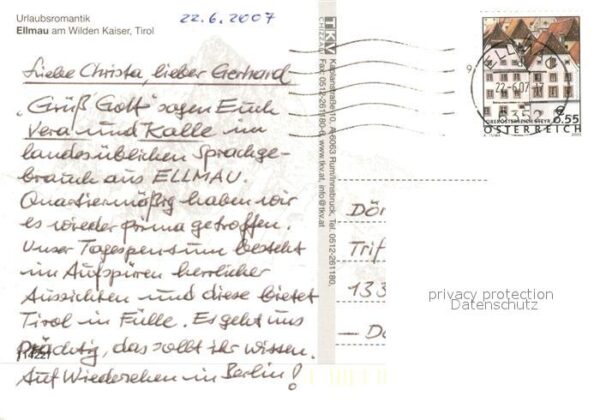 Urlaubsromantik
Ellmau am Wilden Kaiser, Tirol
22.6.2007
Liebe Christa, lieber Gerhard
„Grüß Gott“ sagen Euch
Vera und Kalle im
landesüblichen Sprachge-
brauch aus ELLMAU.
Quartiermäßig haben wir
es wieder prima getroffen.
Unser Tagespensum besteht
im Aufspüren herrlicher
Aussichten und diese bietet
Tirol in Fülle. Es geht uns
prächtig, das sollt ihr wissen.
Auf Wiedersehen in Berlin!
114221
TKV
CHIZZALI
Kaplanstraße 10, A-6063 Rum/Innsbruck, Tel. 0512-261180,
Fax: 0512-261180-6, www.tkv.at, info@tkv.at
22.-6.07
6352
0.55
ÖSTERREICH
Dör
Trif
133
privacy protection
Datenschutz